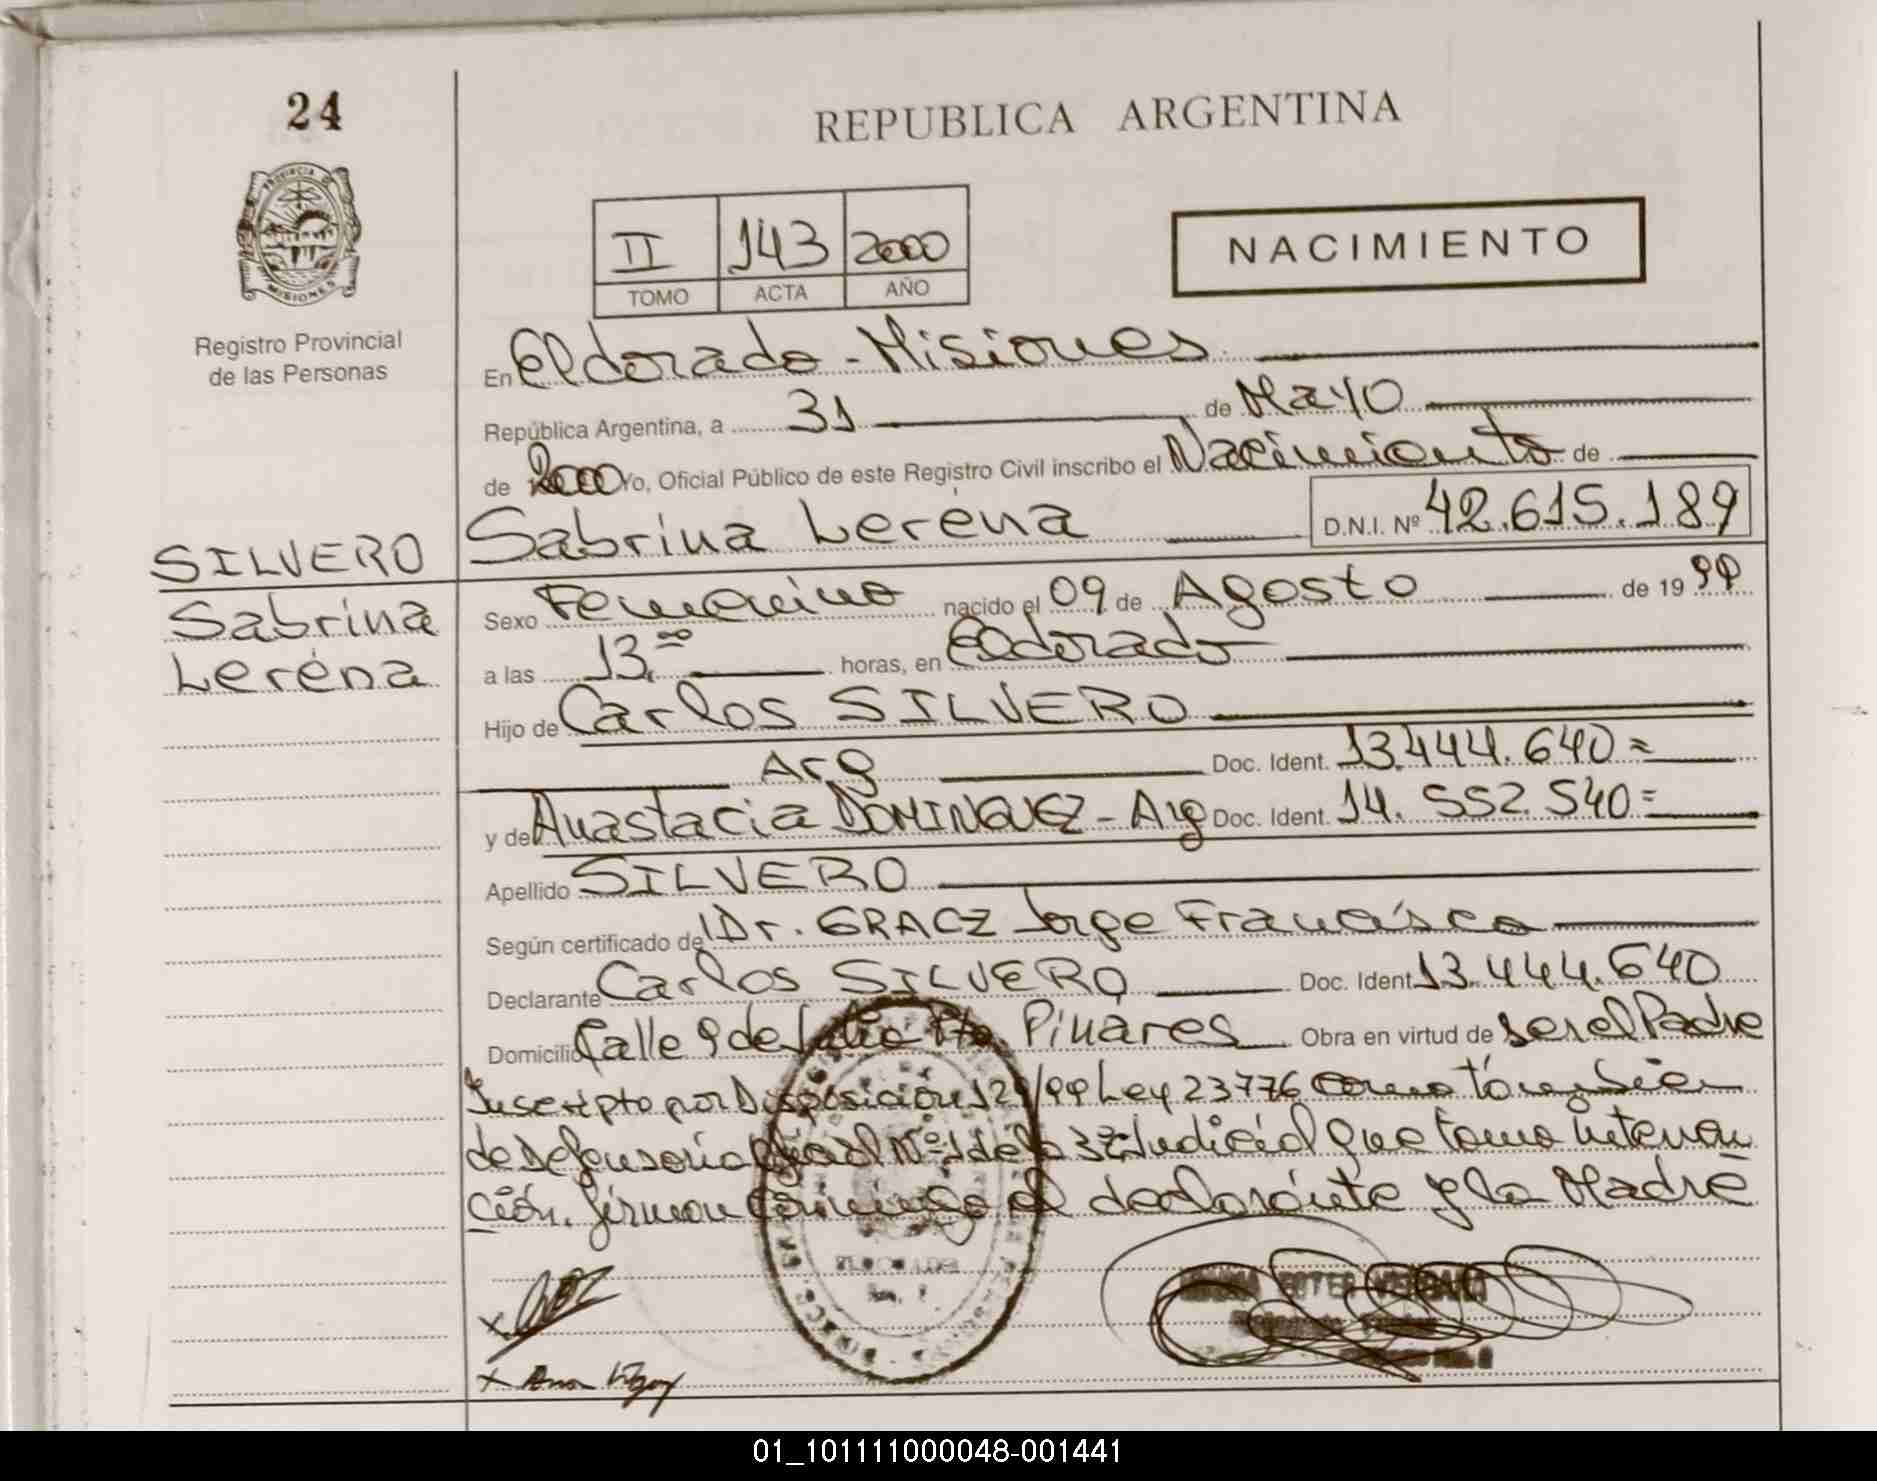 24
REPUBLICA ARGENTINA
PROVINCIA D
MISIONES
Registro Provincial
de las Personas
II 143 2000
TOMO ACTA AÑO
NACIMIENTO
En Eldorado - Misiones
República Argentina, a 31 de Mayo
de 2000 Yo, Oficial Público de este Registro Civil inscribo el Nacimiento de
SILVERO
Sabrina Leréna
Sabrina Lerena D.N.I. Nº 42.615.189
Sexo Femenino nacido el 09 de Agosto de 19 99
a las 13.00 horas, en Eldorado
Hijo de Carlos SILVERO
Arg Doc. Ident. 13.444.640=
y de Anastacia DOMINGUEZ - Arg Doc. Ident. 14.552.540=
Apellido SILVERO
Según certificado de Dr. GRACZ Jorge Francisco
Declarante Carlos SILVERO Doc. Ident. 13.444.640
Domicilio Calle 9 de Julio Pto. Pinares Obra en virtud de ser el Padre
Inscripto por Disposición 129/99 Ley 23776 como también
de Defensoria Oficial Nº 1 de la 3º Judicial que tomo interven
ción. firman conmigo el declaránte y la Madre
01_101111000048-001441